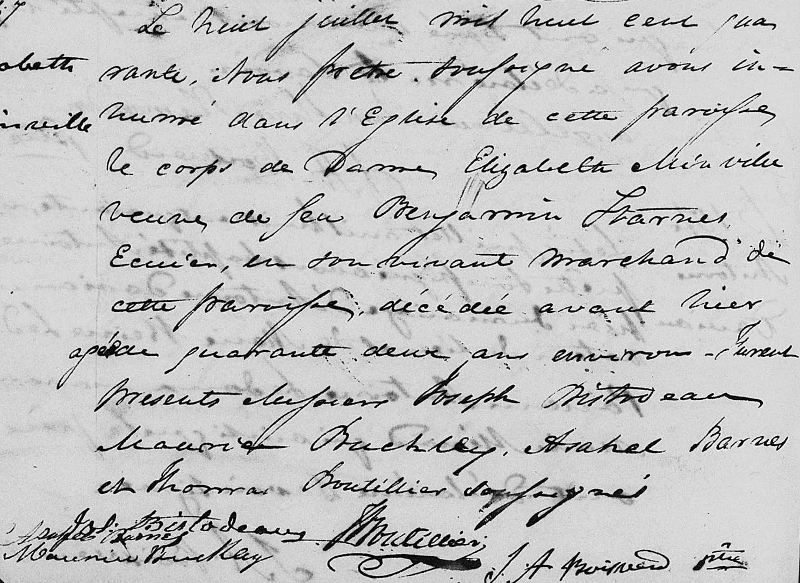 Le huit juillet mil huit cent qua
rante, Nous prêtre soussigné avons in=
humé dans l'Eglise de cette paroisse
le corps de Dame Elizabeth Minville
veuve de feu Benjamin Starnes
Ecuier, en son vivant marchand de
cette paroisse, décédée avant hier
agée de quarante deux ans environ - Furent
presents Messieurs Joseph Bistodeau
Maurice Buckley, Asahel Barnes
et Thomas Boutillier soussignés
Bistodeau Boutillier
Maurice Buckley J A Boisvert ptre